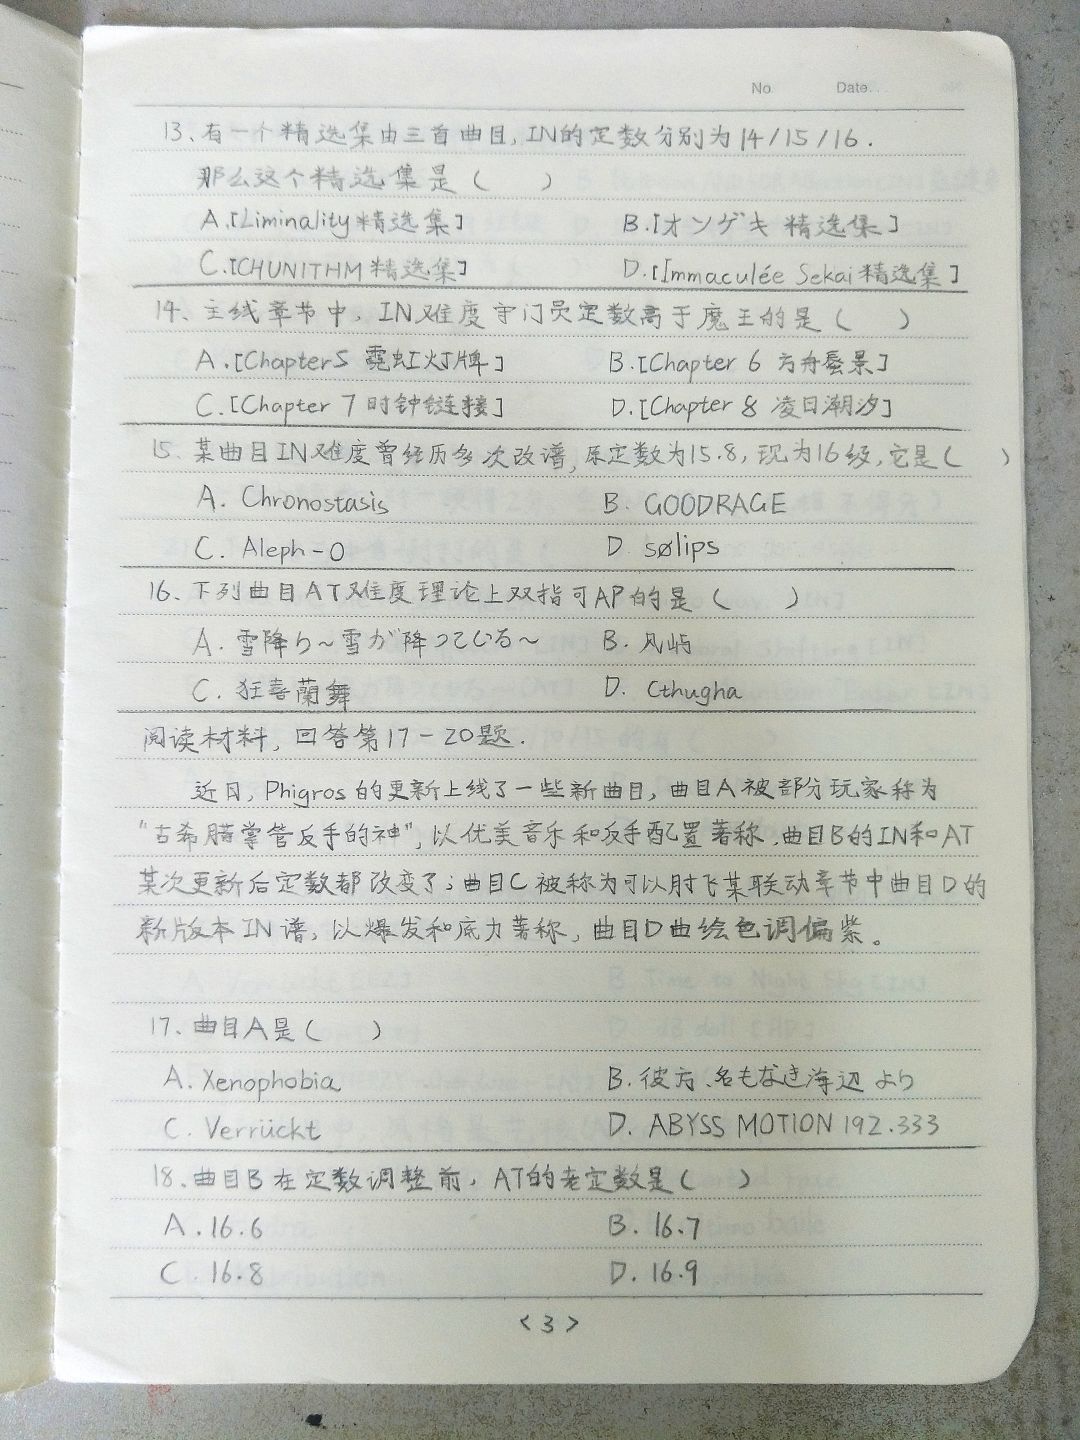 No.
Date.
13、有一个精选集由三首曲目,IN的定数分别为14/15/16.
那么这个精选集是(  )
A.[Liminality精选集]  B.[オンゲキ 精选集]
C.[CHUNITHM精选集]  D.[Immaculée Sekai精选集]
14、主线章节中,IN难度守门员定数高于魔王的是(  )
A.[Chapter5 霓虹灯牌]  B.[Chapter 6 方舟蜃景]
C.[Chapter 7 时钟链接]  D.[Chapter 8 凌日潮汐]
15、某曲目IN难度曾经历多次改谱,原定数为15.8,现为16级,它是(  )
A. Chronostasis  B. GOODRAGE
C. Aleph-0  D. sølips
16、下列曲目AT难度理论上双指可AP的是(  )
A. 雪降り~雪が降っている~  B. 风屿
C. 狂喜蘭舞  D. Cthugha
阅读材料,回答第17-20题.
近日,Phigros的更新上线了一些新曲目,曲目A被部分玩家称为
“古希腊掌管反手的神”,以优美音乐和反手配置著称,曲目B的IN和AT
某次更新后定数都改变了;曲目C被称为可以肘飞某联动章节中曲目D的
新版本IN谱,以爆发和底力著称,曲目D曲绘色调偏紫。
17、曲目A是(  )
A. Xenophobia  B. 彼方、名もなき海辺より
C. Verrückt  D. ABYSS MOTION 192.333
18.曲目B在定数调整前,AT的老定数是(  )
A.16.6  B. 16.7
C. 16.8  D. 16.9
<3>